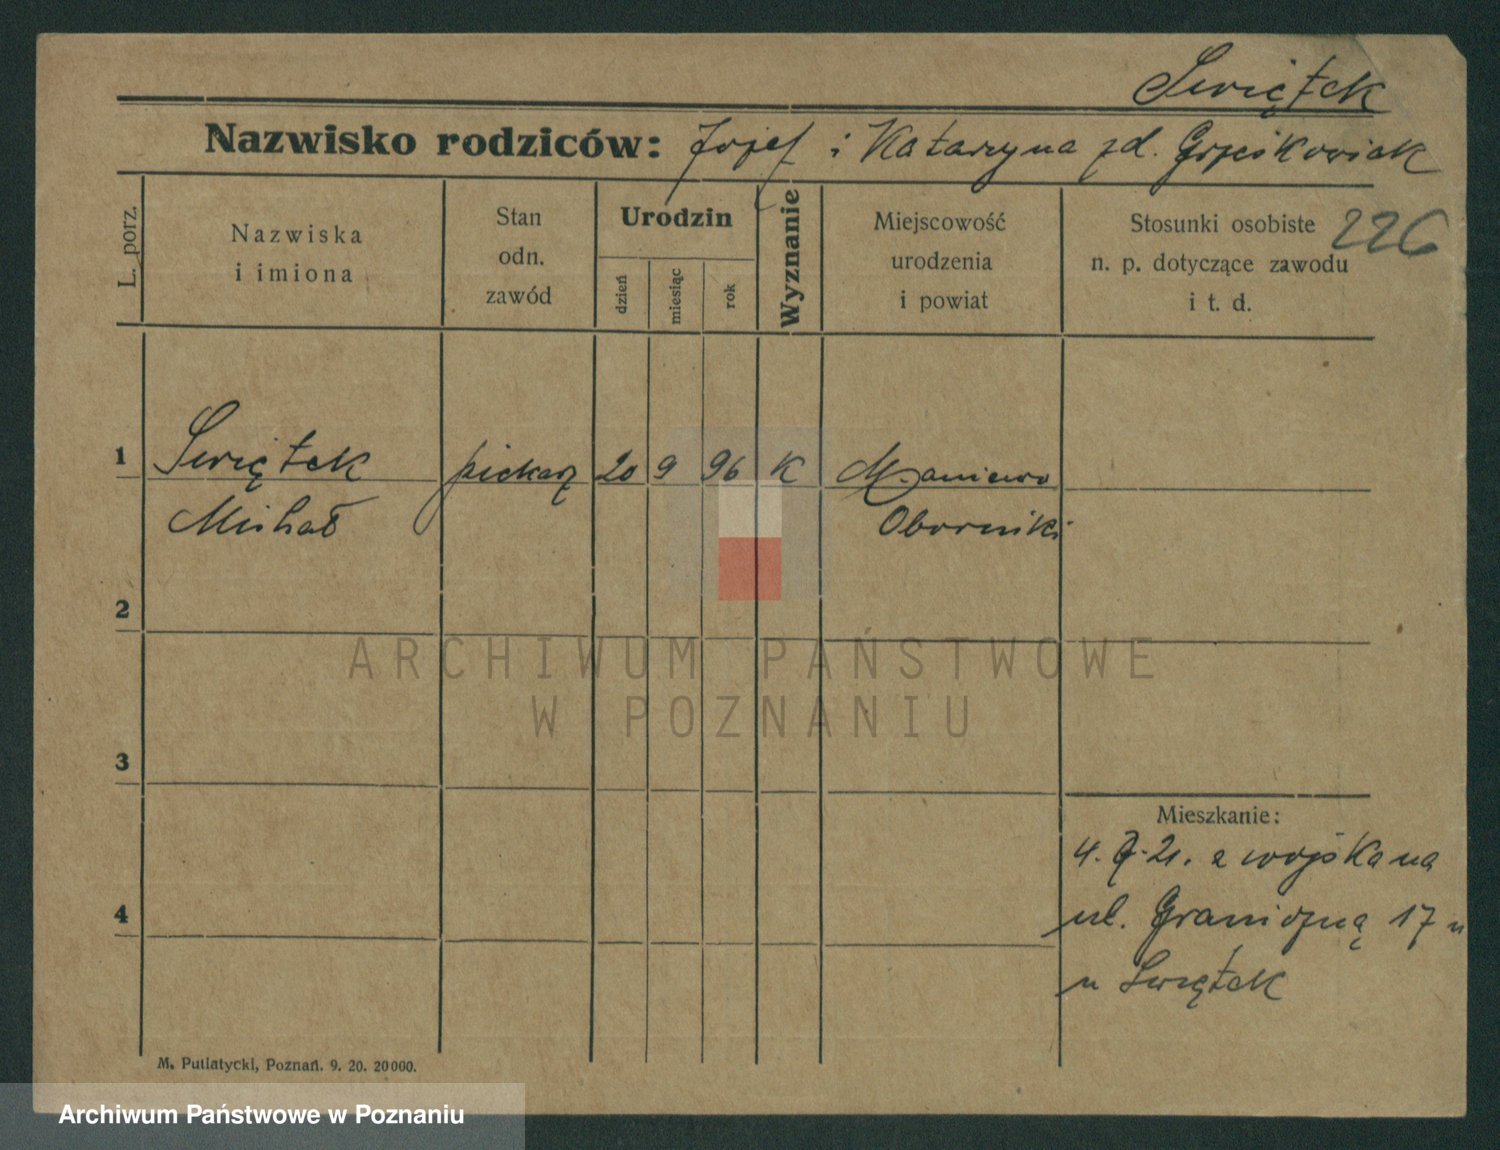 Swiętek
Nazwisko rodziców: Józef i Katarzyna zd. Grześkowiak
226
L. porz.
Nazwiska
i imiona
Stan
odn.
zawód
Urodzin
dzień
miesiąc
rok
Wyznanie
Miejscowość
urodzenia
i powiat
Stosunki osobiste
n. p. dotyczące zawodu
i t. d.
1 Swiętek piekarz 20 9 96 K Maniewo
Michał Oborniki
2
3
4
Mieszkanie:
4. 21. z wojska na
ul. Graniczną 17
u Swiętek
M. Putiatycki, Poznań. 9. 20. 20000.
ARCHIWUM PAŃSTWOWE
W POZNANIU
Archiwum Państwowe w Poznaniu